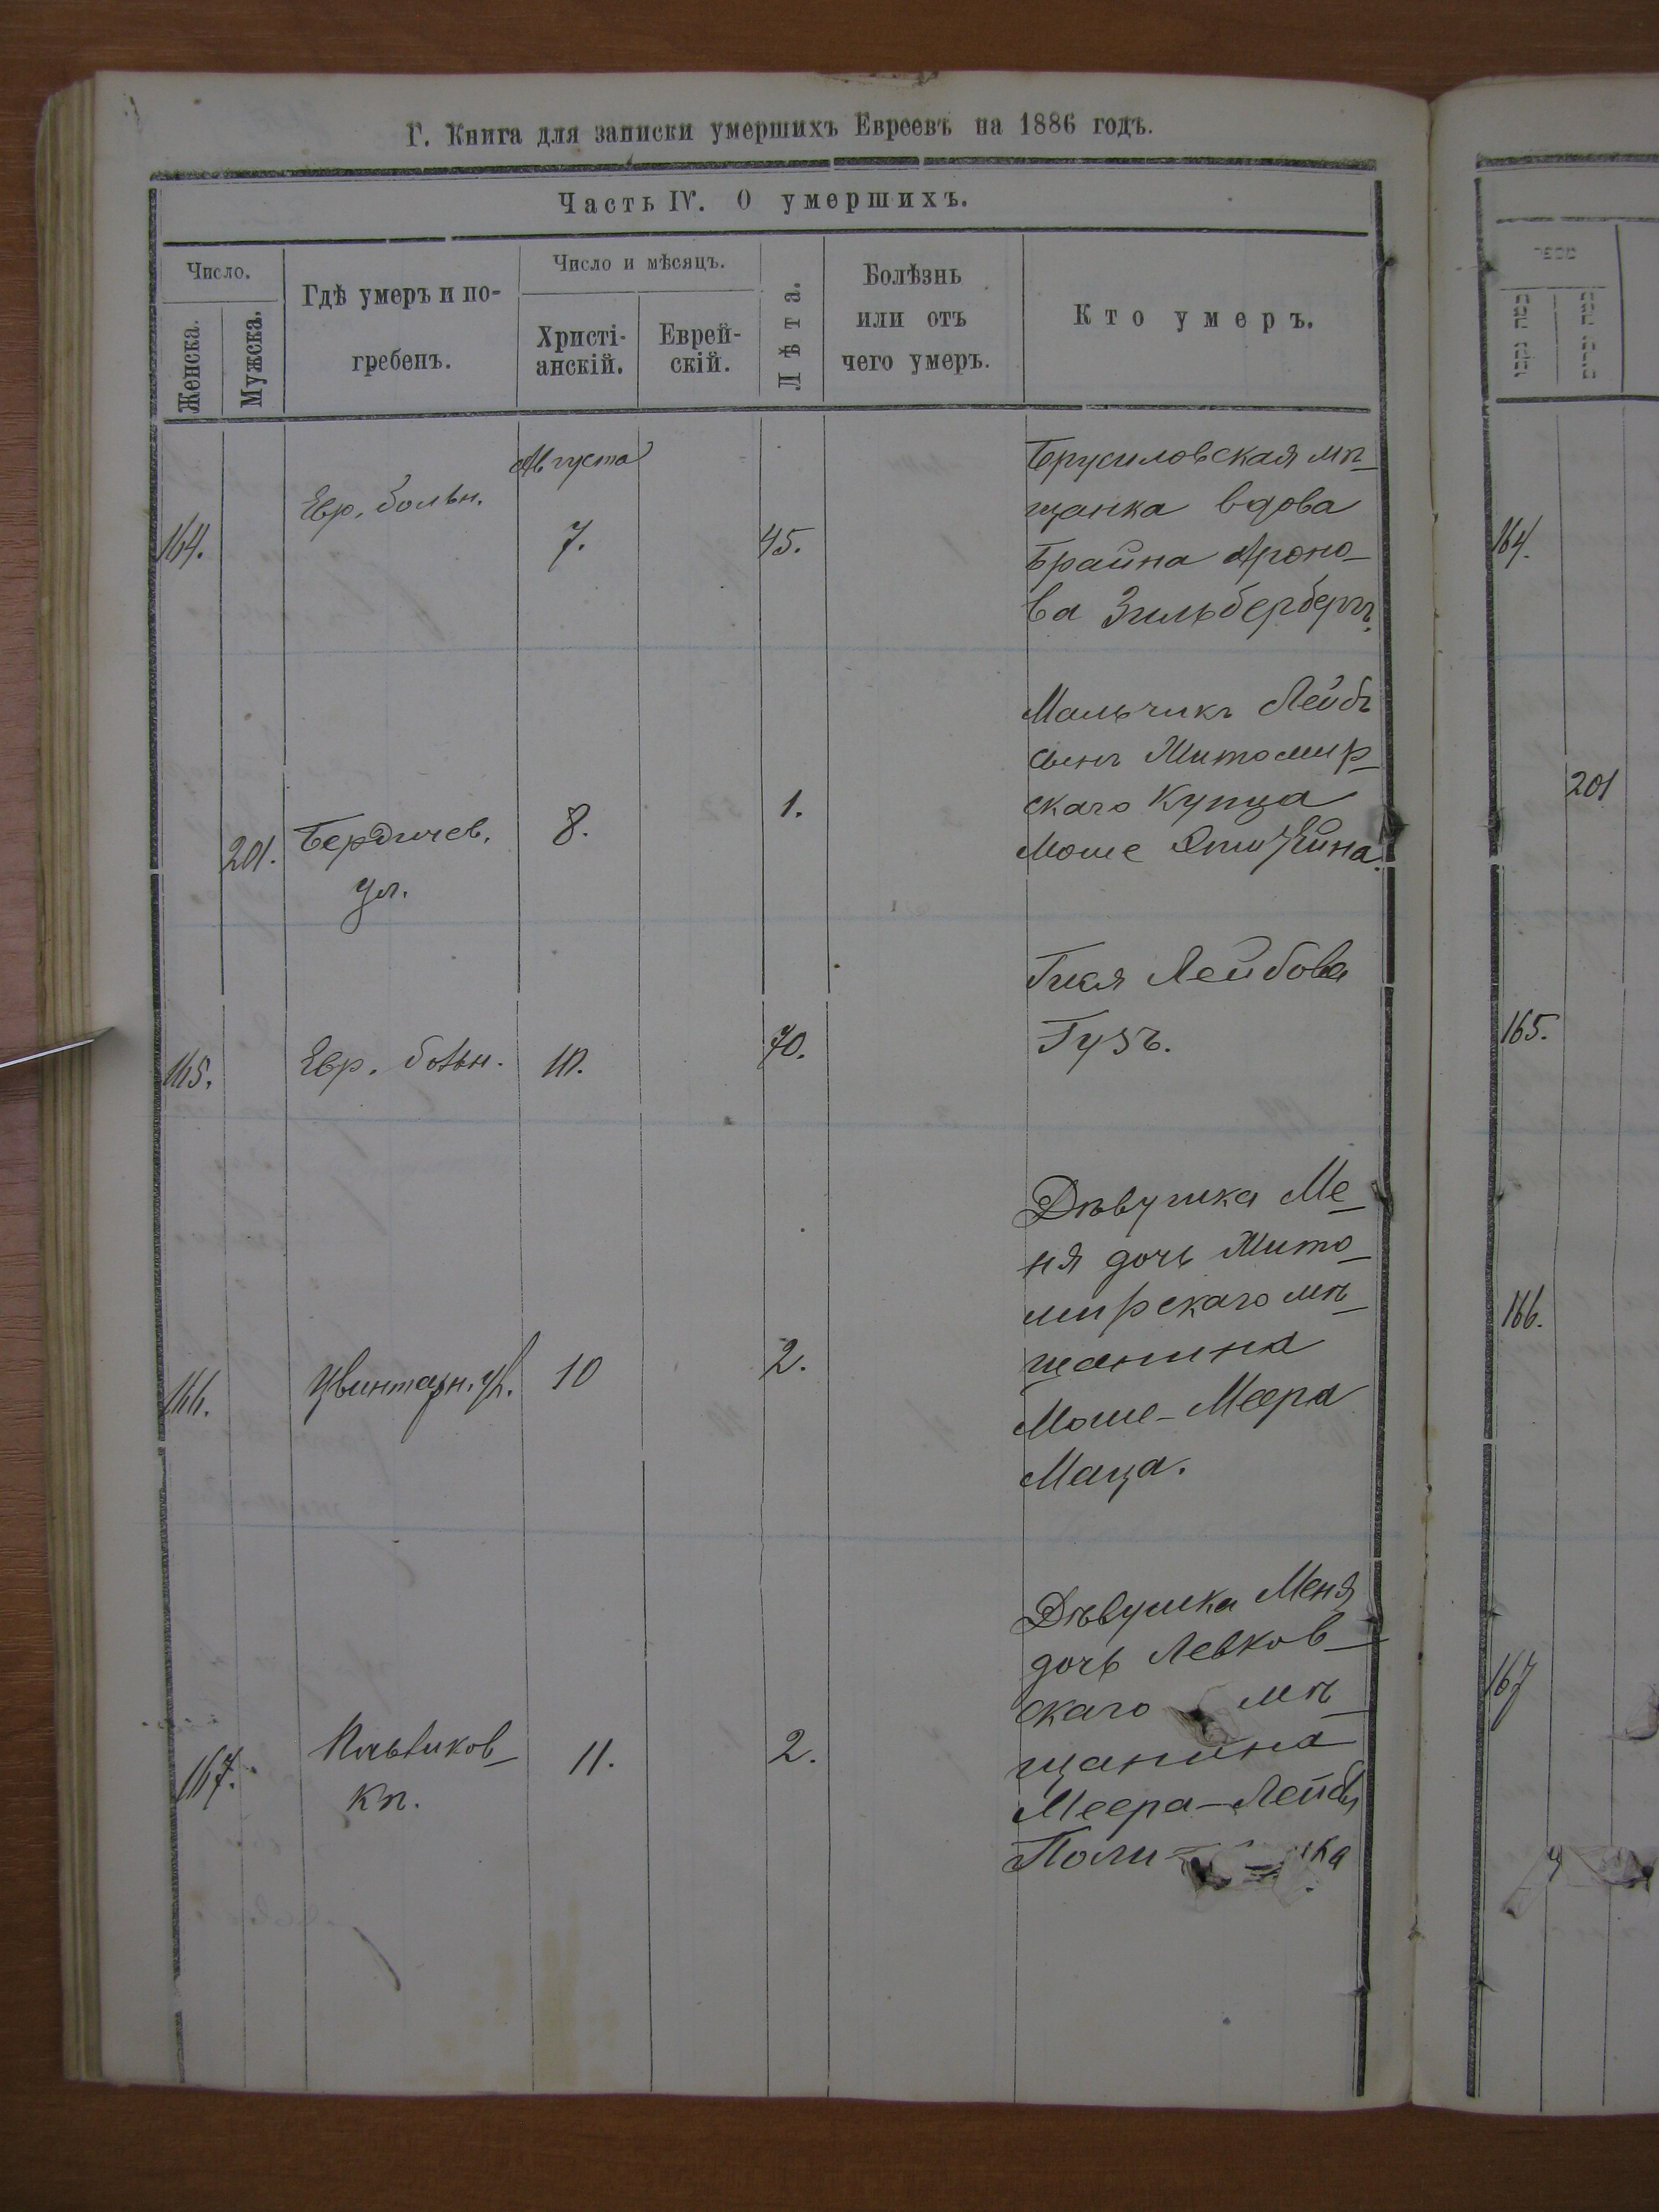 Г. Книга для записки умершихъ Евреевъ на 1886 годъ.
Часть IV. О умершихъ.
Число.
Женска.
Мужска.
Гдѣ умеръ и по-
гребенъ.
Число и мѣсяцъ.
Христі-
анскій.
Еврей-
скій.
Лѣта.
Болѣзнь
или отъ
чего умеръ.
Кто умеръ.
מספר
164.
Евр. больн.
Августа
7.
45.
Брусиловская мѣ-
щанка вдова
Брайна Ароно-
ва Зильбербергъ.
164.
201.
Бердичев.
ул.
8.
1.
Мальчикъ Лейбъ
сынъ Житомир-
скаго купца
Моше
201
165.
Евр. больн.
10.
70.
Лейбова
Гузъ.
165.
166.
Цвинтарн. ул.
10
2.
Дѣвушка Ме-
ня дочь Жито-
мирскаго мѣ-
щанина
Моше-Меера
Маца.
166.
167.
11.
2.
Дѣвушка Меня
дочь Левков-
скаго мѣ-
щанина
Меера-Лейбы
167